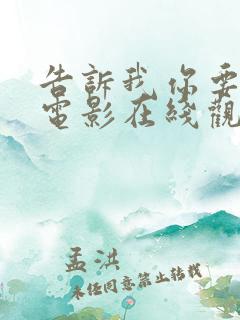 告訴我你要
電影在綫觀
孟洪
未經同意禁止轉載